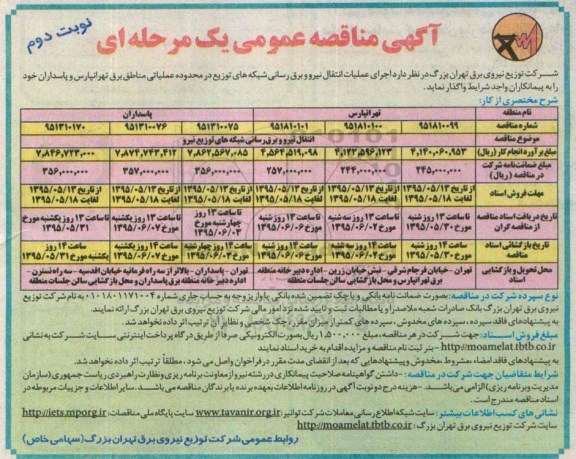 نوبت دوم
آگهی مناقصه عمومی یک مرحله ای
شرکت توزیع نیروی برق تهران بزرگ در نظر دارد اجرای عملیات انتقال نیرو و برق رسانی شبکه های توزیع در محدوده عملیاتی مناطق برق تهرانپارس و پاسداران خود
را به پیمانکاران واجد شرایط واگذار نماید.
شرح مختصری از کار:
نام منطقه تهرانپارس پاسداران
شماره مناقصه ۹۵۱۸۱۰۰۹۹ ۹۵۱۸۱۰۱۰۰ ۹۵۱۸۱۰۱۰۱ ۹۵۱۳۱۰۰۷۵ ۹۵۱۳۱۰۰۷۶ ۹۵۱۳۱۰۱۷۰
موضوع مناقصه انتقال نیرو و برق رسانی شبکه های توزیع نیرو
مبلغ برآورد انجام کار (ریال) ۴,۱۴۰,۰۶۰,۹۵۳ ۴,۱۲۳,۵۹۶,۱۲۳ ۴,۵۶۴,۵۱۹,۰۹۸ ۷,۸۶۲,۵۶۷,۰۸۵ ۷,۸۷۴,۷۴۳,۴۱۲ ۷,۸۴۶,۷۲۳,۰۰۰
مبلغ ضمانت نامه شرکت در مناقصه (ریال) ۲۴۵,۰۰۰,۰۰۰ ۲۴۴,۰۰۰,۰۰۰ ۲۵۷,۰۰۰,۰۰۰ ۳۵۶,۰۰۰,۰۰۰ ۳۵۷,۰۰۰,۰۰۰ ۳۵۶,۰۰۰,۰۰۰
مهلت فروش اسناد از تاریخ ۱۳۹۵/۰۵/۱۳ لغایت ۱۳۹۵/۰۵/۱۸ از تاریخ ۱۳۹۵/۰۵/۱۳ لغایت ۱۳۹۵/۰۵/۱۸ از تاریخ ۱۳۹۵/۰۵/۱۳ لغایت ۱۳۹۵/۰۵/۱۸ از تاریخ ۱۳۹۵/۰۵/۱۳ لغایت ۱۳۹۵/۰۵/۱۸ از تاریخ ۱۳۹۵/۰۵/۱۳ لغایت ۱۳۹۵/۰۵/۱۸ از تاریخ ۱۳۹۵/۰۵/۱۳ لغایت ۱۳۹۵/۰۵/۱۸
تاریخ دریافت اسناد مناقصه از مناقصه گران تا ساعت ۱۳ روز شنبه مورخ ۱۳۹۵/۰۵/۳۰ تا ساعت ۱۳ روز سه شنبه مورخ ۱۳۹۵/۰۶/۰۲ تا ساعت ۱۳ روز شنبه مورخ ۱۳۹۵/۰۶/۰۶ تا ساعت ۱۳ روز چهارشنبه مورخ ۱۳۹۵/۰۶/۰۳ تا ساعت ۱۳ روز یکشنبه مورخ ۱۳۹۵/۰۶/۰۷ تا ساعت ۱۳ روز یکشنبه مورخ ۱۳۹۵/۰۵/۳۱
تاریخ بازگشائی اسناد مناقصه ساعت ۱۴ روز شنبه مورخ ۱۳۹۵/۰۵/۳۰ ساعت ۱۴ روز سه شنبه مورخ ۱۳۹۵/۰۶/۰۲ ساعت ۱۴ روز شنبه مورخ ۱۳۹۵/۰۶/۰۶ ساعت ۱۴ روز چهارشنبه مورخ ۱۳۹۵/۰۶/۰۳ ساعت ۱۴ روز یکشنبه مورخ ۱۳۹۵/۰۶/۰۷ ساعت ۱۴ روز یکشنبه مورخ ۱۳۹۵/۰۵/۳۱
محل تحویل و بازگشایی اسناد تهران - خیابان فرجام شرقی - نبش خیابان زرین - اداره دبیرخانه منطقه برق تهرانپارس و محل بازگشایی سالن جلسات منطقه تهران - پاسداران - بالاتر از سه راه فرمانیه خیابان اقدسیه - سه راه نسترن - اداره دبیرخانه منطقه برق پاسداران و محل بازگشایی سالن جلسات منطقه
نوع سپرده شرکت در مناقصه: بصورت ضمانت نامه بانکی و یا چک تضمین شده بانکی یا واریز وجه به حساب جاری شماره ۰۱۰۱۸۰۱۱۷۱۰۰۴ به نام شرکت توزیع
نیروی برق تهران بزرگ بانک صادرات شعبه ملاصدرا و یا مطالبات ثبت و تایید شده نزد امور مالی شرکت توزیع نیروی برق تهران بزرگ ارائه نمایند.
به پیشنهادهای فاقد سپرده، سپرده های مخدوش، سپرده های کمتر از میزان مقرر، چک شخصی و نظایر آن ترتیب اثر داده نخواهد شد.
مبلغ فروش اسناد: جهت شرکت در هر مناقصه، مبلغ ۱,۵۰۰,۰۰۰ ریال بصورت الکترونیکی صرفا از طریق درگاه پرداخت اینترنتی سایت شرکت به نشانی
http://moamelat.tbtb.co.ir - بنر ثبت نام مناقصه و مزایده اقدام به خرید اسناد نمایند.
به پیشنهادهای فاقد امضاء، مشروط، مخدوش و پیشنهادهایی که بعد از انقضای مدت مقرر در فراخوان واصل می شود، مطلقاً ترتیب اثر داده نخواهد شد.
شرایط متقاضیان جهت شرکت در مناقصه: - داشتن گواهینامه صلاحیت پیمانکاری در رشته نیرو از معاونت برنامه ریزی و نظارت راهبردی ریاست جمهوری (سازمان
مدیریت و برنامه ریزی) الزامی می باشد. - هزینه درج دو نوبت آگهی در روزنامه اطلاعات بعهده برنده یا برندگان مناقصه می باشد. سایر اطلاعات و جزییات مربوطه در
اسناد مناقصه مندرج است.
نشانی های کسب اطلاعات بیشتر: سایت شبکه اطلاع رسانی معاملات شرکت توانیر: www.tavanir.org.ir سایت پایگاه ملی مناقصات: http://iets.mporg.ir
سایت شرکت توزیع نیروی برق تهران بزرگ: http://moamelat.tbtb.co.ir
روابط عمومی شرکت توزیع نیروی برق تهران بزرگ (سهامی خاص)